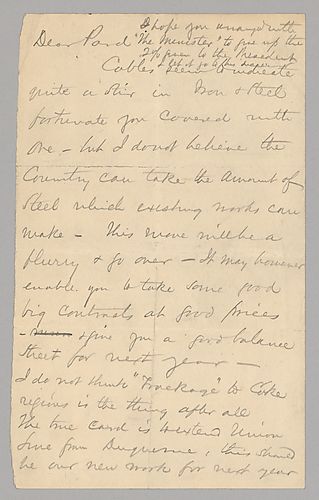 I hope you arranged with
Dear Pard "The Minister" to give up the
to the President
let it go to the
Cables seem to indicate
quite a stir in Iron & Steel
fortunate you covered with
ore - but I do not believe the
Country can take the amount of
Steel which existing works can
make - This move will be a
flurry & go over - It may however
enable you to take some good
big Contracts at good prices
- & give you a good balance
sheet for next year -
I do not think "Trackage" to Coke
regions is the thing after all
The true card is to extend Union
line from Duquesne, this should
be our new work for next year